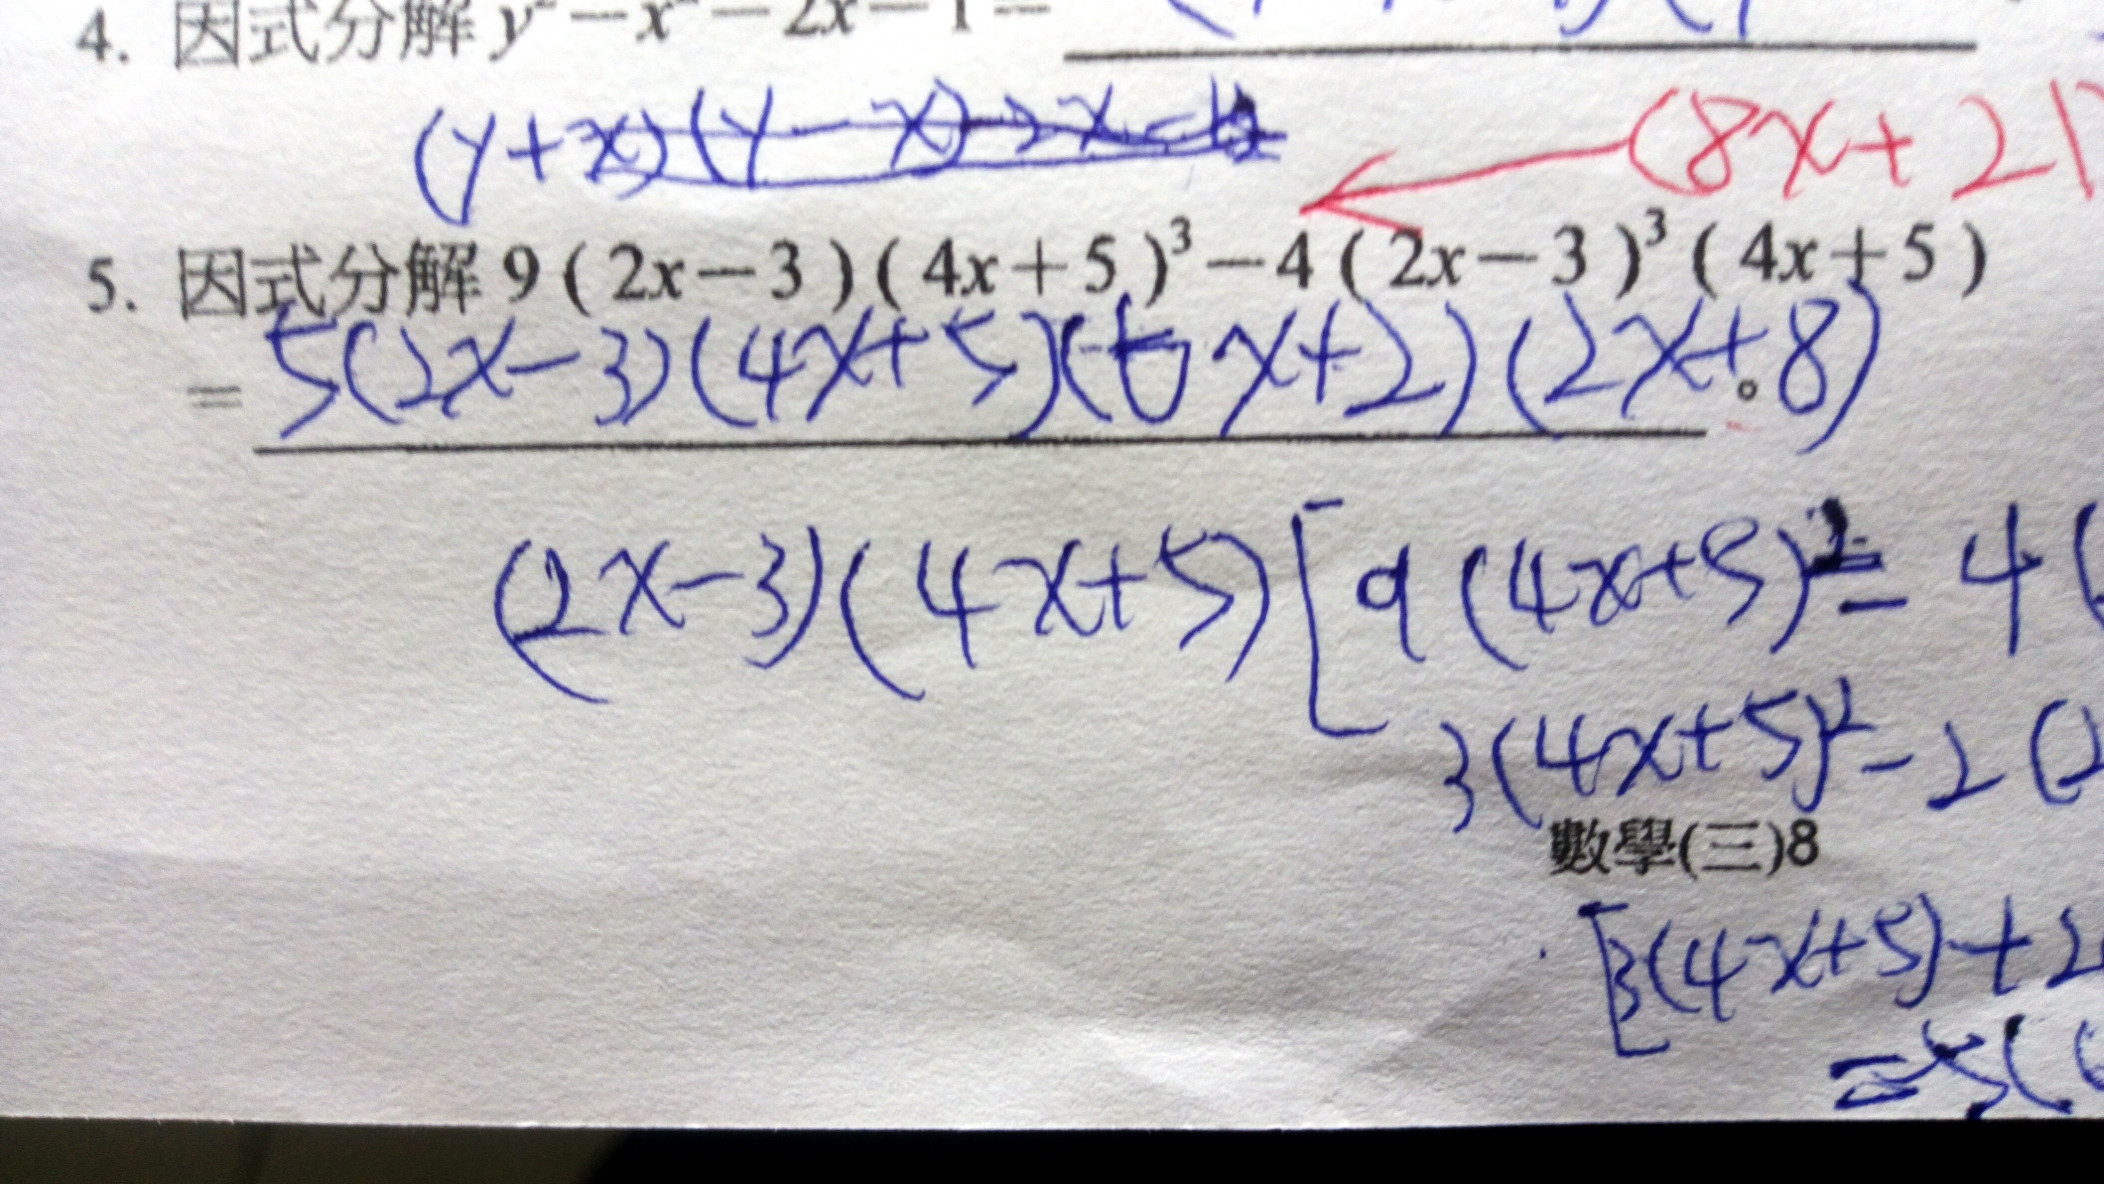 4. 因式分解 y² - x² - 2x - 1 =
(y+x)(y-x)-2x-1
(8x+21)
5. 因式分解 9(2x-3)(4x+5)³-4(2x-3)³(4x+5)
= 5(2x-3)(4x+5)(6x+2)(2x+8)。
(2x-3)(4x+5)[9(4x+5)²-4(
3(4x+5)²-2(2
數學(三)8
[3(4x+5)+2